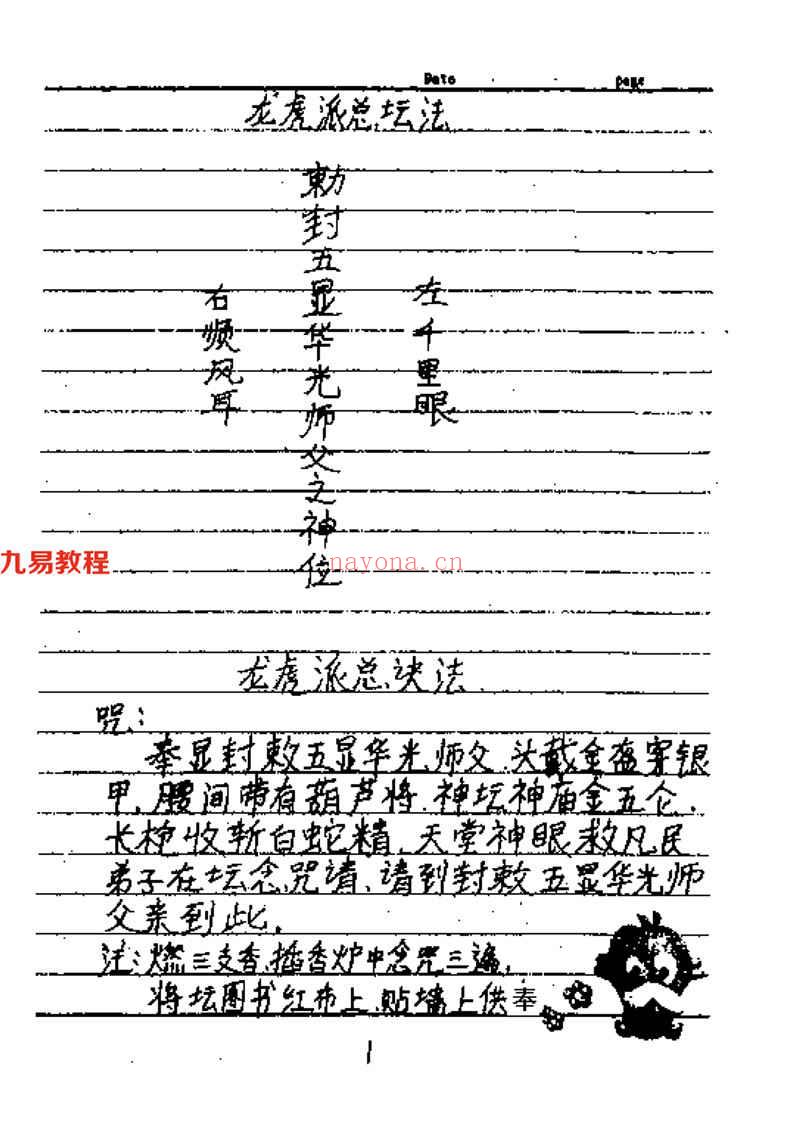 Date page
龙虎派总坛法
左千里眼
勅封五显华光师父之神位
右顺风耳
九易教程
nayona.cn
龙虎派总诀法
咒:
奉显封敕五显华光师父.头戴金盔穿银
甲.腰间带有葫芦将.神坛神庙金五仑.
长枪收斩白蛇精.天堂神眼救凡民
弟子在坛念咒请、请到封敕五显华光师
父亲到此.
注:燃三支香.插香炉中念咒三遍,
将坛图书红布上.贴墙上供奉
1